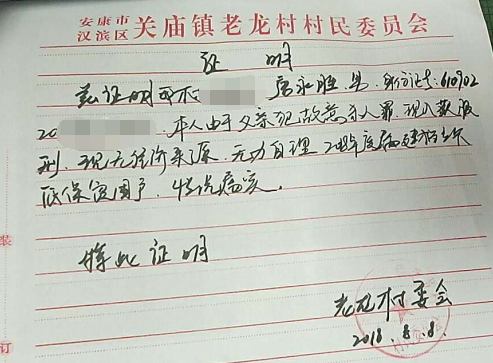 安康市
汉滨区 关庙镇老龙村村民委员会
证 明
兹证明 唐永胜，男，身份证号：610902
20 本人由于父亲犯故意杀人罪，现入狱服
刑，现无经济来源，无力自理，
低保贫困户，情况属实。
特此证明
老龙村委会
2018.8.8.
装
订